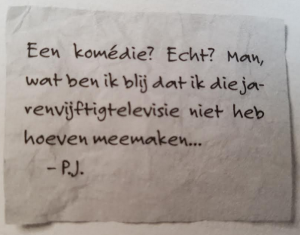 Een komédie? Echt? Man,
wat ben ik blij dat ik die ja-
renvijftigtelevisie niet heb
hoeven meemaken...
– P.J.